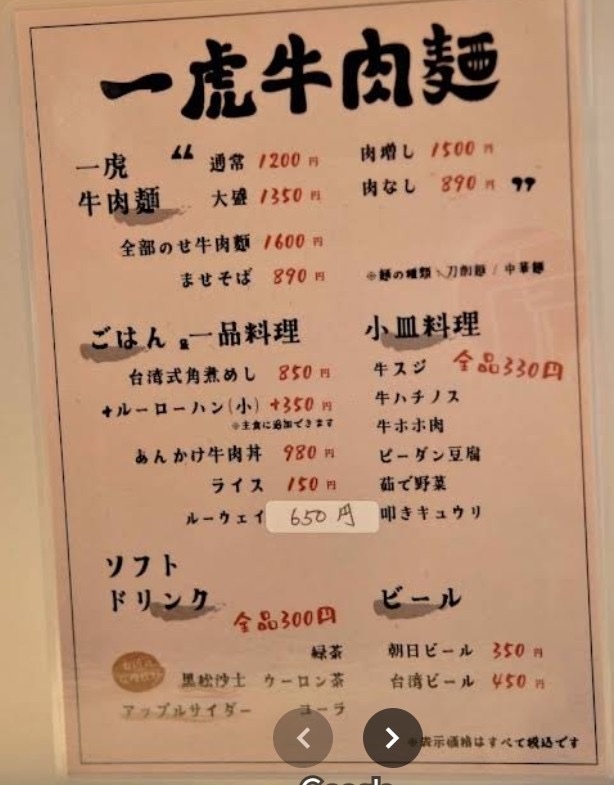 一虎牛肉麺
一虎
牛肉麺
“ 通常 1200円
大盛 1350円
肉増し 1500円
肉なし 890円 ”
全部のせ牛肉麺 1600円
ませそば 890円
※麺の種類 \ 刀削麺 / 中華麺
ごはん & 一品料理
台湾式角煮めし 850円
+ルーローハン(小) +350円
※主食に追加できます
あんかけ牛肉丼 980円
ライス 150円
ルーウェイ 650円
小皿料理
全品330円
牛スジ
牛ハチノス
牛ホホ肉
ピーダン豆腐
茹で野菜
叩きキュウリ
ソフト
ドリンク
全品300円
緑茶
黒松沙士 ウーロン茶
アップルサイダー コーラ
ビール
朝日ビール 350円
台湾ビール 450円
※表示価格はすべて税込です
Google